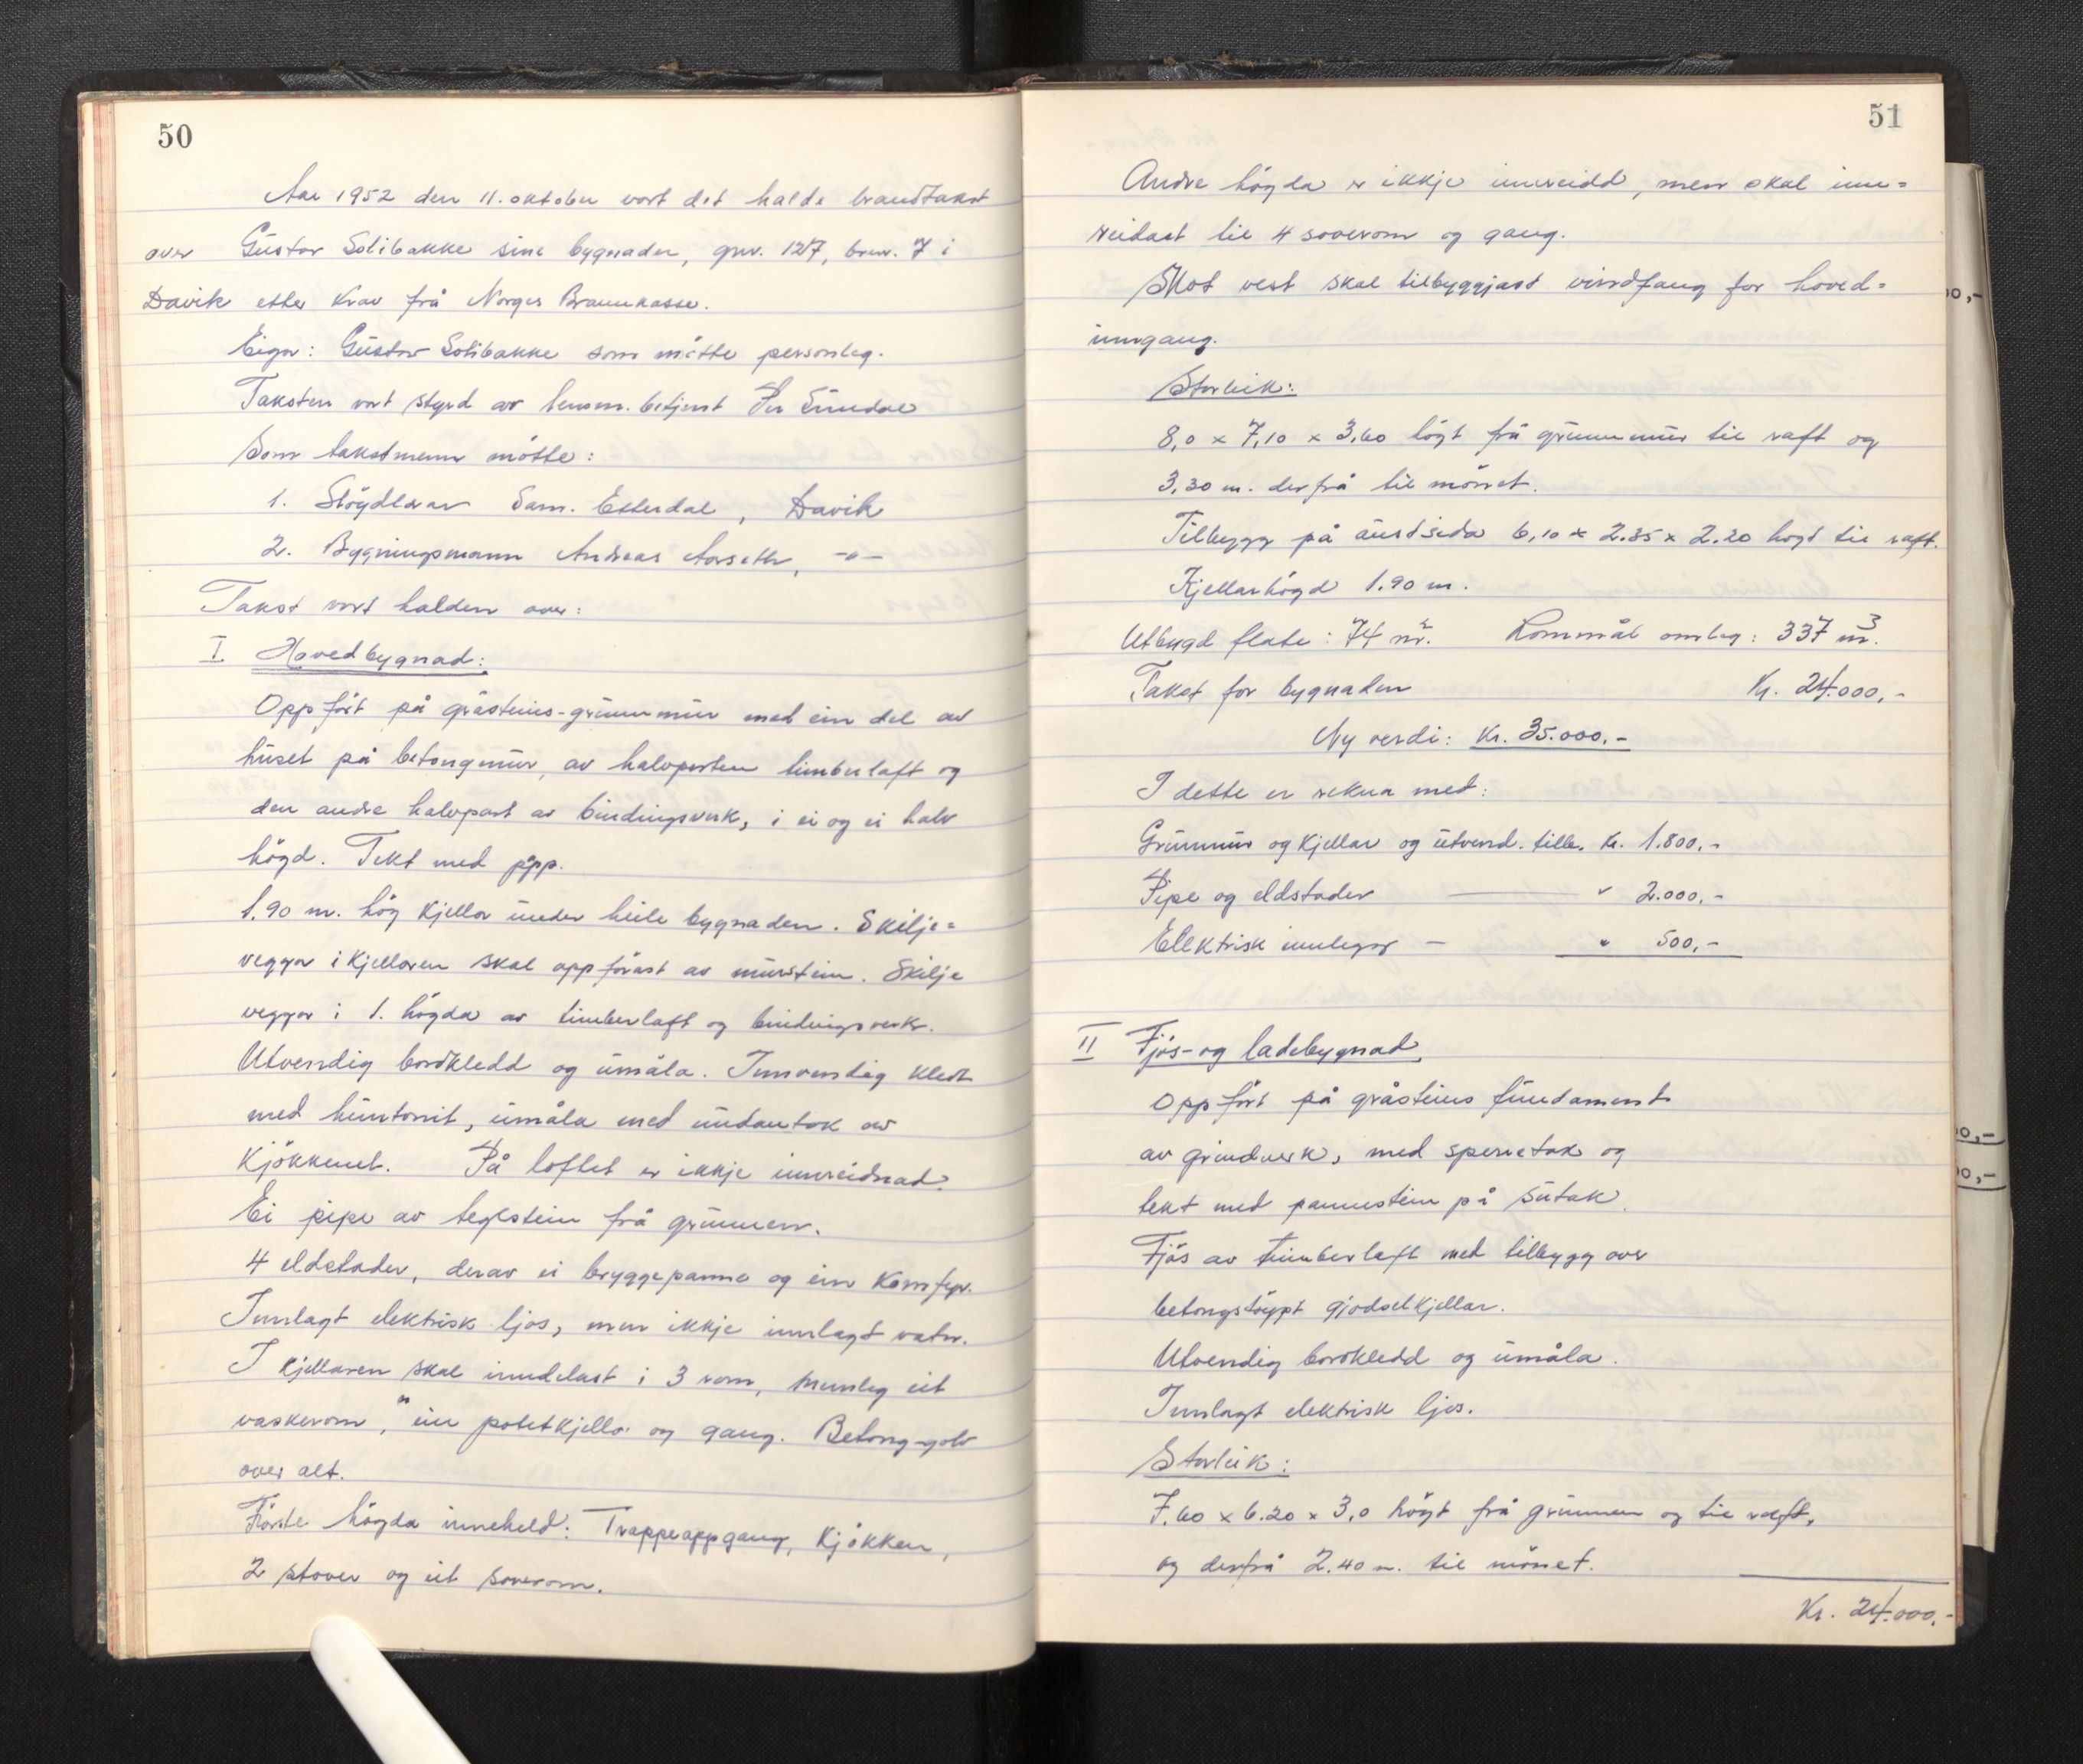 50
Aar 1952 den 11. oktober vart det halde brandtakst
over Gustav Solibakke sine bygnader, gnr. 127, bnr. 7 i
Davik etter krav frå Norges Brannkasse.
Eigar: Gustav Solibakke som møtte personleg.
Taksten vart styrd av lensm. betjent Per Sundal
Som takstmenn møtte:
1. Sløydlærar Sam. Etterdal, Davik
2. Bygningsmann Andreas Aarseth, -"-
Takst vart halden over:
I Hovedbygnad:
Oppført på gråsteins-grunnmur med ein del av
huset på betongmur, av halvparten timberlaft og
den andre halvpart av bindingsverk, i ei og ei halv
høgd. Tekt med papp.
1.90 m. høg kjellar under heile bygnaden. Skilje=
veggar i kjellaren skal oppførast av murstein. Skilje
veggar i 1. høgda av timberlaft og bindingsverk.
Utvendig bordkledd og umåla. Innvendig kledt
med huntonit, umåla med undantak av
kjøkkenet. På loftet er ikkje innreidnad.
Ei pipe av teglstein frå grunnen.
4 eldstader, derav ei bryggepanne og ein komfyr.
Innlagt elektrisk ljos, men ikkje innlagt vatn.
I kjellaren skal inndelast i 3 rom, nemleg eit
vaskerom, ein potetkjellar og gang. Betong-golv
over alt.
Første høgda inneheld: Trappeoppgang, kjøkken,
2 stover og eit soverom.
51
Andre høgda er ikkje innreidd, men skal inn=
reidast til 4 soverom og gang.
Mot vest skal tilbyggjast vindfang for hoved=
inngang.
Storleik:
8,0 x 7,10 x 3,60 høgt frå grunnmur til raft og
3,30 m. derfrå til mønet.
Tilbygg på austsida 6,10 x 2.35 x 2.20 høgt til raft.
Kjellarhøgd 1.90 m.
Utbygd flate: 74 m². Rommål omlag: 337 m³.
Takst for bygnaden Kr. 24.000,-
Ny verdi: Kr. 35.000.-
I dette er rekna med:
Grunnmur og kjellar og utvend. tilh. Kr. 1.800.-
Pipe og eldstader " 2.000,-
Elektrisk innlegg - " 500,-
II Fjøs- og ladebygnad.
Oppført på gråsteins fundament
av grindverk, med sperretak og
tekt med pannestein på sutak.
Fjøs av timberlaft med tilbygg over
betongstøypt gjødselkjellar.
Utvendig bordkledd og umåla.
Innlagt elektrisk ljos.
Storleik:
7.60 x 6.20 x 3,0 høgt frå grunnen og til raft,
og derfrå 2.40 m. til mønet.
Kr. 24.000,-